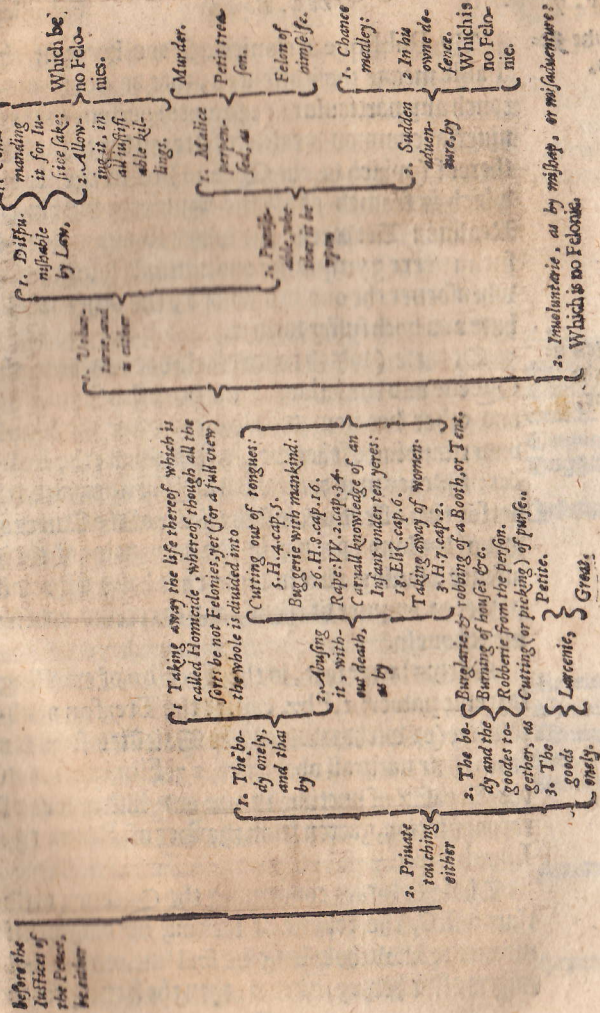 before the
Iustices of
the Peace,
be either
2. Priuate
touching
either
1. The bo-
dy onely,
and that
by
1 Taking away the life thereof which is
called Homicide, whereof though all the
sorts be not Felonies, yet (for a full view)
the whole is diuided into
2. Abusing
it, with-
out death,
as by
Cutting out of tongues:
5. H. 4. cap. 5.
Buggerie with mankind:
26. H. 8. cap. 16.
Rape: VV. 2. cap. 34.
Carnall knowledge of an
Infant vnder ten yeres:
18. Eliz. cap. 6.
Taking away of women.
3. H. 7. cap. 2.
2. The bo-
dy and the
goodes to-
gether, as
Burglarie, & robbing of a Booth, or Tent.
Burning of houses &c.
Robberie from the person.
Cutting (or picking) of purses.
3. The
goods
onely.
Larcenie,
Petite.
Great.
1. Volun-
tarie, and
is either
1. Dispu-
nishable
by Law,
manding
it for Iu-
stice sake:
2. Allow-
ing it, in
all iustifi-
able kil-
lings.
Which be
no Felo-
nies.
2. Punish-
able, whe-
ther it be
vpon
1. Malice
perpen-
sed, as
Murder.
Petit trea
son.
Felon of
himselfe.
2. Sudden
aduen-
ture, by
1. Chance
medley:
2 In his
owne de-
fence.
Which is
no Felo-
nie.
2. Inuoluntarie, as by mishap, or misaduenture?
Which is no Felonie.